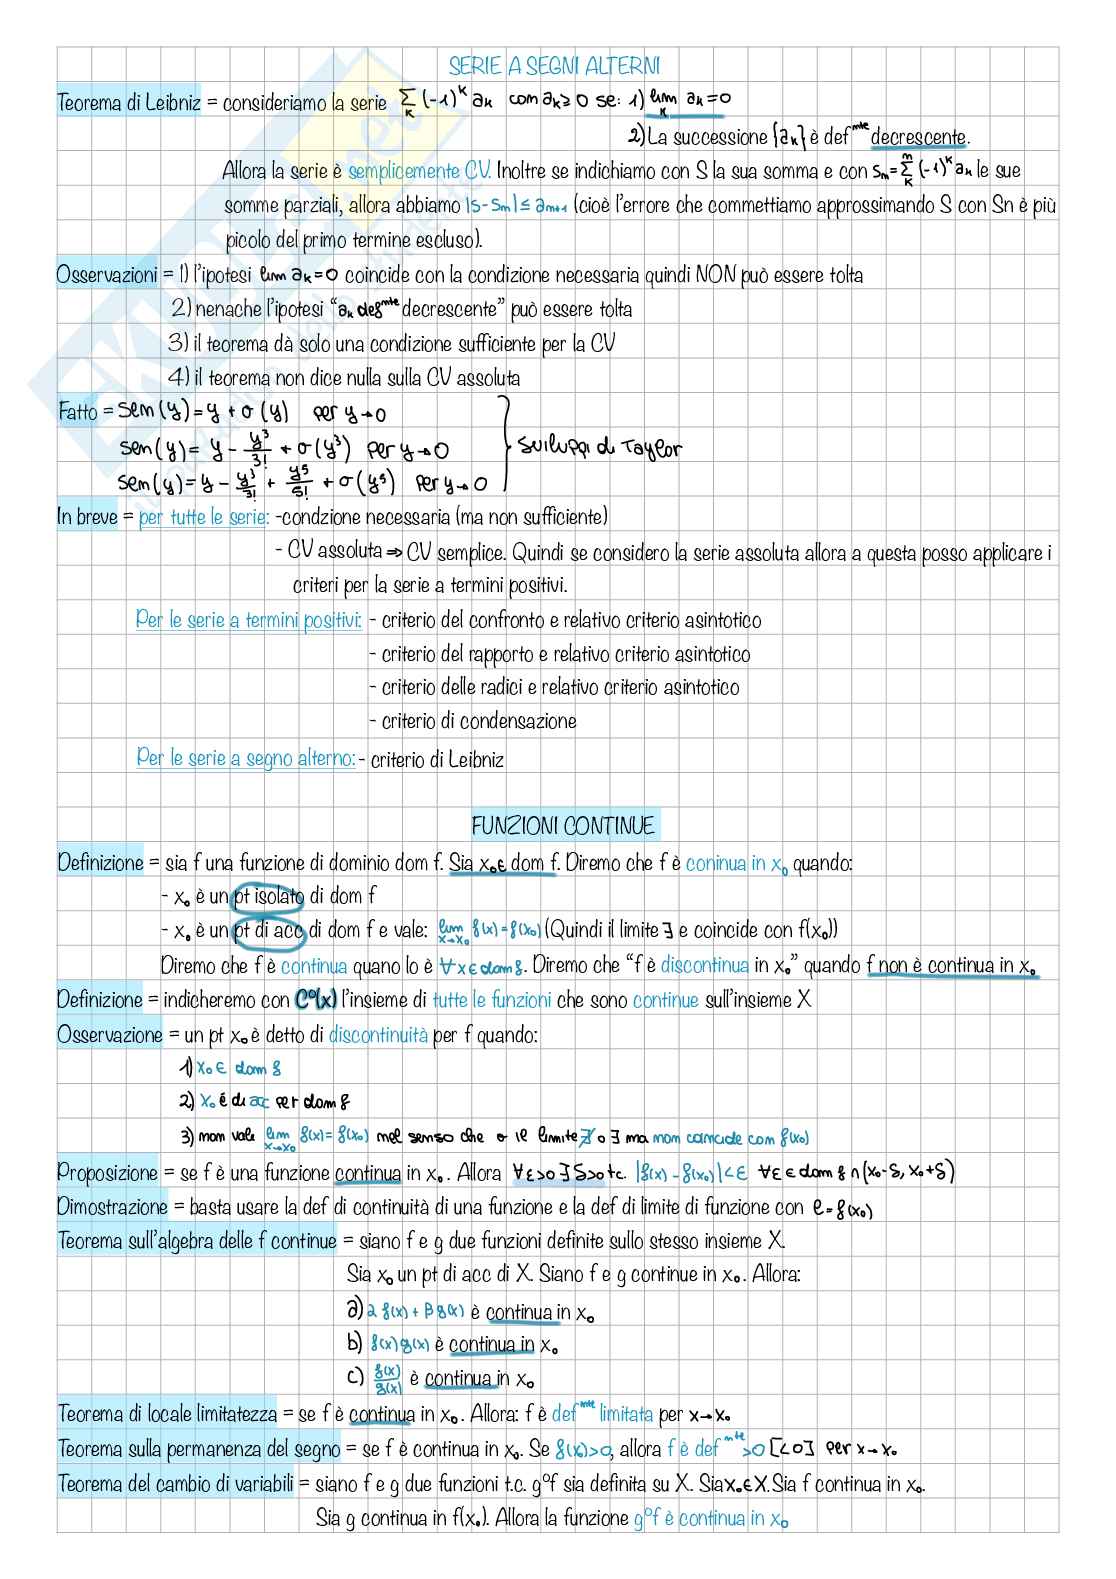 SERIE A SEGNI ALTERNI
Teorema di Leibniz = consideriamo la serie ∑_k (-1)^k a_k con a_k ≥ 0 se: 1) lim_k a_k = 0
2) La successione {a_k} è def^mte decrescente.
Allora la serie è semplicemente CV. Inoltre se indichiamo con S la sua somma e con S_m = ∑_k^m (-1)^k a_k le sue
somme parziali, allora abbiamo |S - S_m| ≤ a_m+1 (cioè l'errore che commettiamo approssimando S con Sn è più
picolo del primo termine escluso).
Osservazioni = 1) l'ipotesi lim a_k = 0 coincide con la condizione necessaria quindi NON può essere tolta
2) nenache l'ipotesi "a_k def^mte decrescente" può essere tolta
3) il teorema dà solo una condizione sufficiente per la CV
4) il teorema non dice nulla sulla CV assoluta
Fatto = sem(y) = y + σ(y) per y → 0
sem(y) = y - y³/3! + σ(y³) per y → 0
sem(y) = y - y³/3! + y⁵/5! + σ(y⁵) per y → 0
} sviluppi di Taylor
In breve = per tutte le serie: -condzione necessaria (ma non sufficiente)
- CV assoluta ⇒ CV semplice. Quindi se considero la serie assoluta allora a questa posso applicare i
criteri per la serie a termini positivi.
Per le serie a termini positivi: - criterio del confronto e relativo criterio asintotico
- criterio del rapporto e relativo criterio asintotico
- criterio delle radici e relativo criterio asintotico
- criterio di condensazione
Per le serie a segno alterno: - criterio di Leibniz
FUNZIONI CONTINUE
Definizione = sia f una funzione di dominio dom f. Sia x₀ ∈ dom f. Diremo che f è coninua in x₀ quando:
- x₀ è un pt isolato di dom f
- x₀ è un pt di acc di dom f e vale: lim_x→x₀ f(x) = f(x₀) (Quindi il limite ∃ e coincide con f(x₀))
Diremo che f è continua quano lo è ∀x ∈ dom f. Diremo che "f è discontinua in x₀" quando f non è continua in x₀
Definizione = indicheremo con C⁰(X) l'insieme di tutte le funzioni che sono continue sull'insieme X
Osservazione = un pt x₀ è detto di discontinuità per f quando:
1) x₀ ∈ dom f
2) x₀ é di acc per dom f
3) mom vale lim_x→x₀ f(x) = f(x₀) mel semso che o il limite ∄ o ∃ ma mom coimcide com f(x₀)
Proposizione = se f è una funzione continua in x₀. Allora ∀ε>0 ∃ δ>0 t.c. |f(x) - f(x₀)| < ε ∀ε ∈ dom f ∩ (x₀-δ, x₀+δ)
Dimostrazione = basta usare la def di continuità di una funzione e la def di limite di funzione con ℓ = f(x₀)
Teorema sull'algebra delle f continue = siano f e g due funzioni definite sullo stesso insieme X.
Sia x₀ un pt di acc di X. Siano f e g continue in x₀. Allora:
a) α f(x) + β g(x) è continua in x₀
b) f(x) g(x) è continua in x₀
c) f(x)/g(x) è continua in x₀
Teorema di locale limitatezza = se f è continua in x₀. Allora: f è def^mte limitata per x → x₀
Teorema sulla permanenza del segno = se f è continua in x₀. Se f(x₀)>0, allora f è def^mte >0 [<0] per x → x₀
Teorema del cambio di variabili = siano f e g due funzioni t.c. g⁰f sia definita su X. Sia x₀ ∈ X. Sia f continua in x₀.
Sia g continua in f(x₀). Allora la funzione g⁰f è continua in x₀